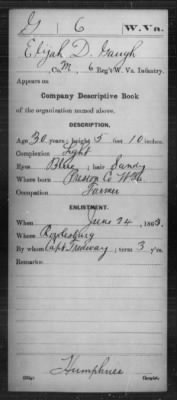 G 6 W.Va.
Elijah D. Gaugh
Co. M, 6 Reg't W. Va. Infantry.
Appears on
Company Descriptive Book
of the organization named above.
DESCRIPTION.
Age 30 years; height 5 feet 10 inches.
Complexion Light
Eyes Blue; hair Sandy
Where born Preston Co W Va
Occupation Farmer
ENLISTMENT.
When June 24, 1863.
Where Rowlesburg
By whom Capt Tredway; term 3 y'rs.
Remarks:
Humphries
Copyist.